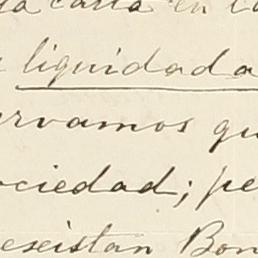 carta en la
liquidada
rvamos qu
ociedad; pe
esistan Bon